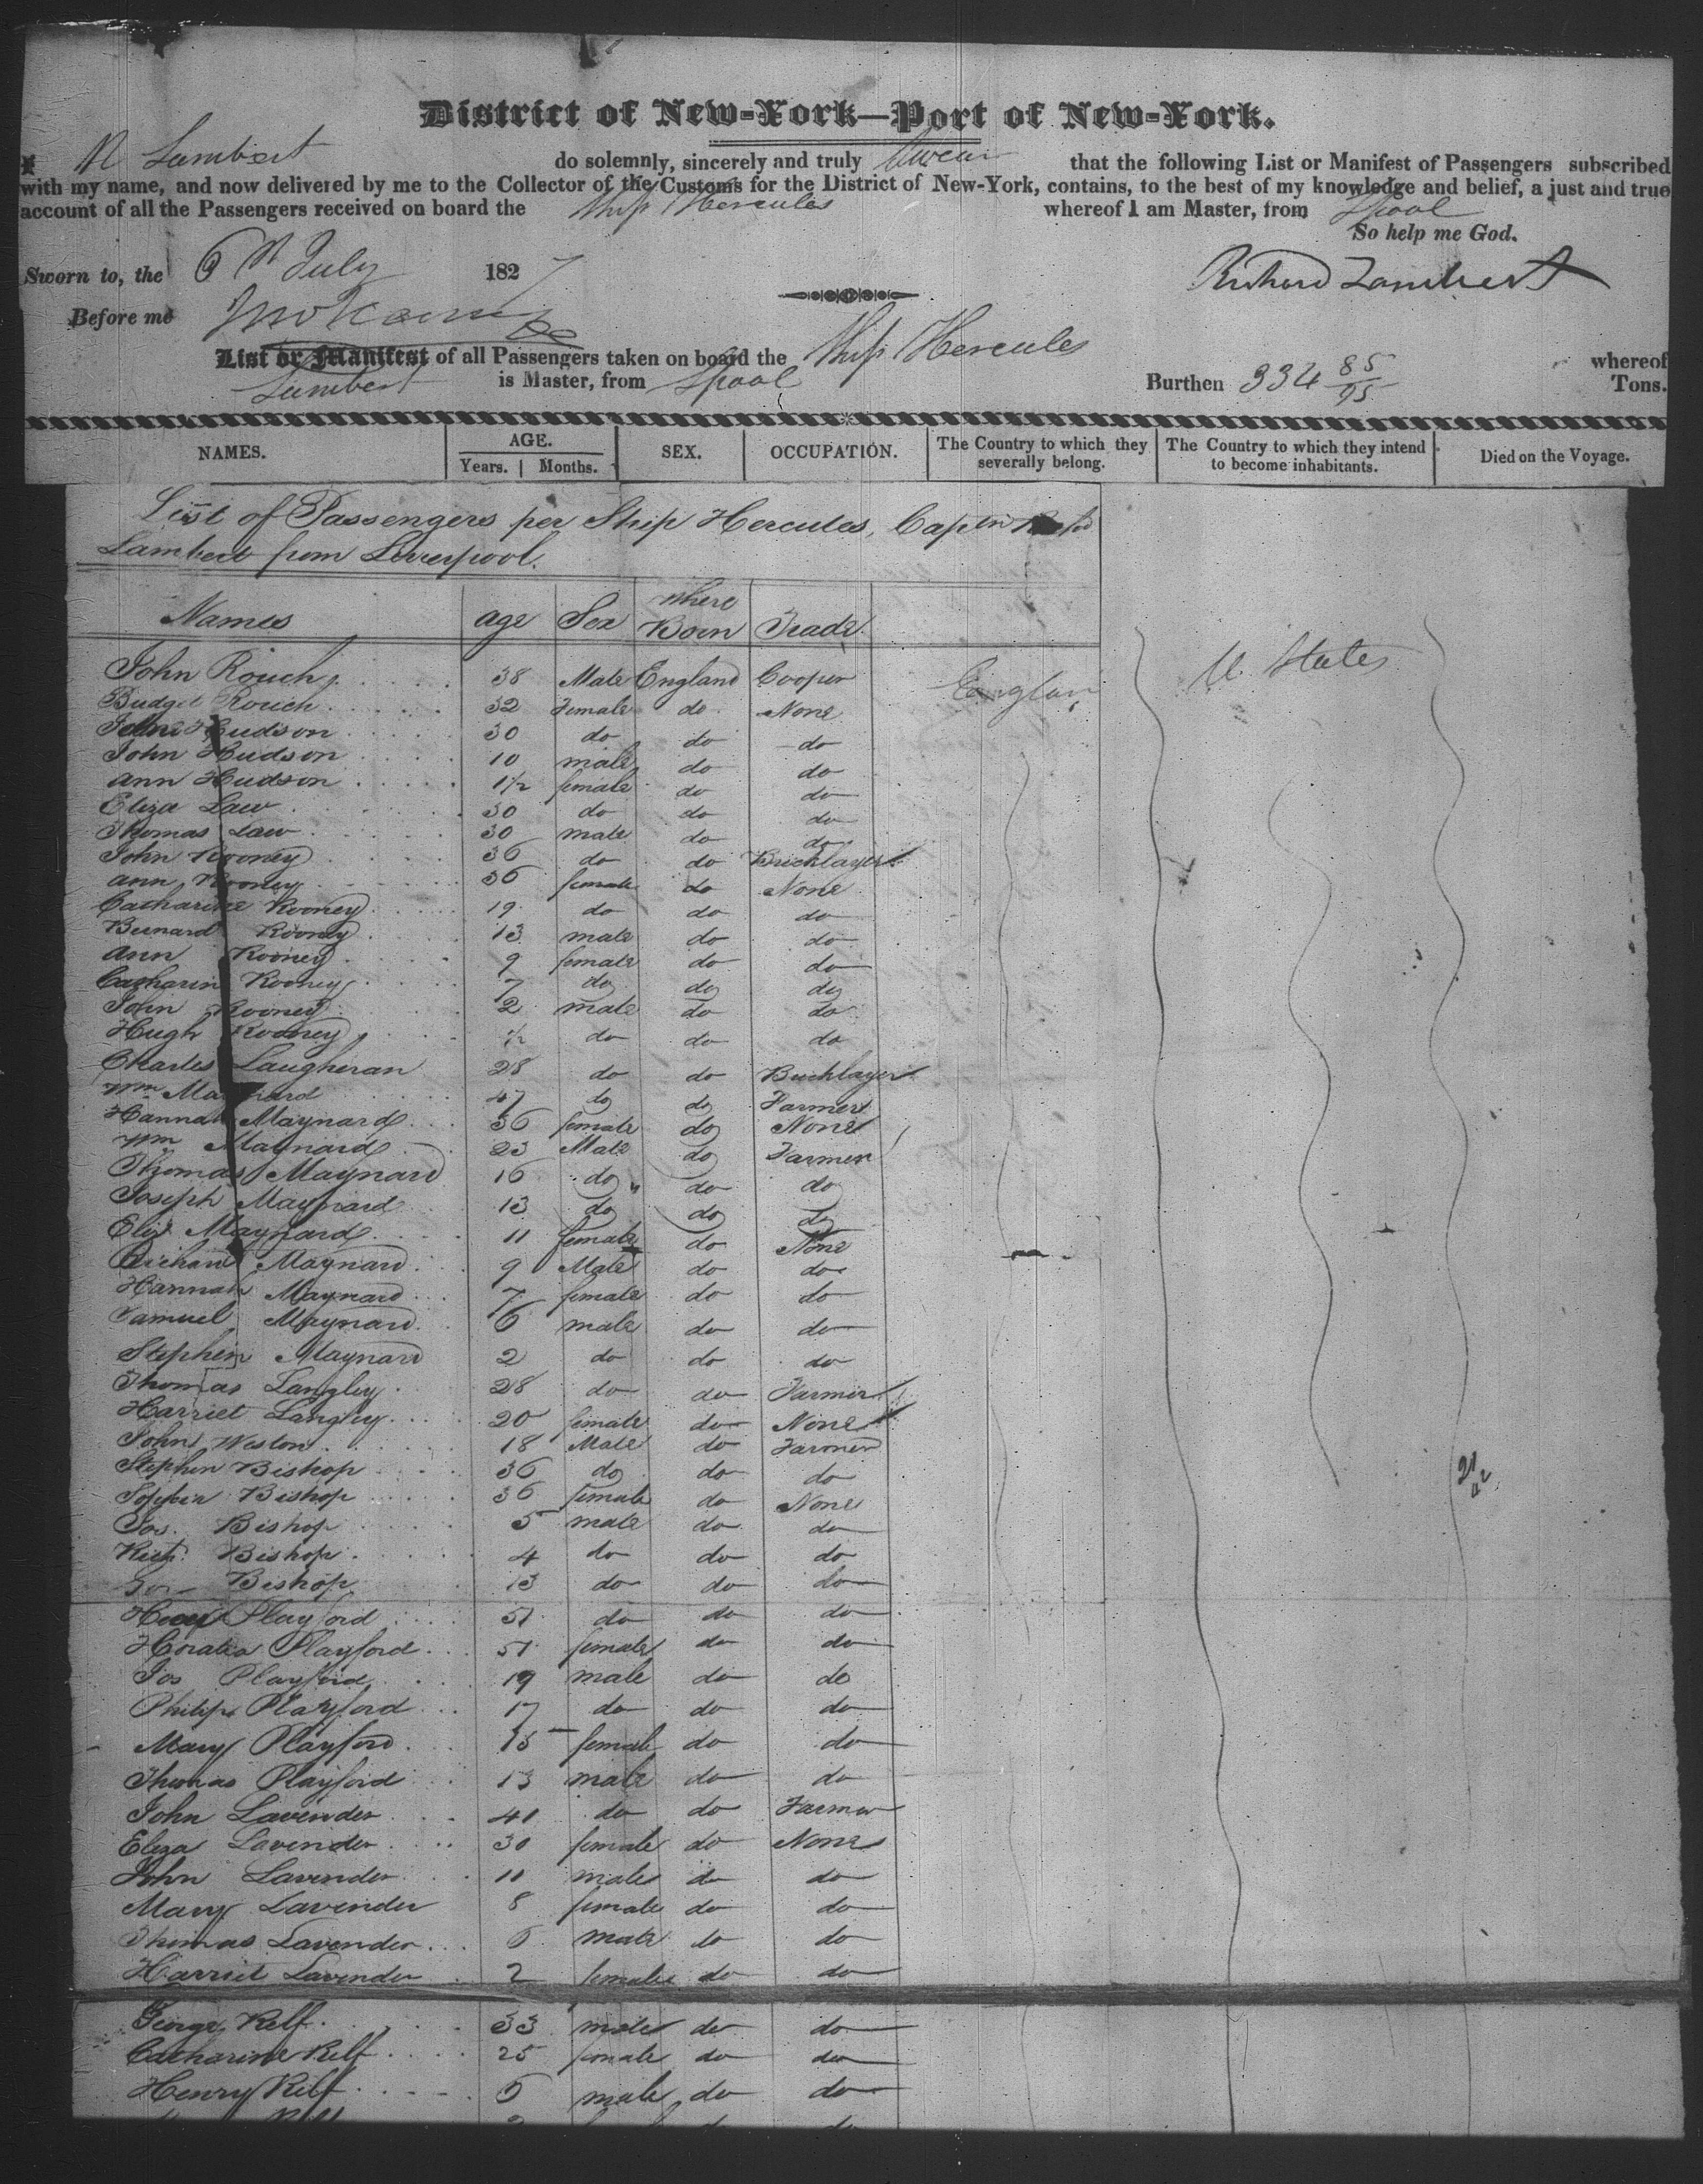 District of New-York—Port of New-York.
I, R Lambert do solemnly, sincerely and truly Swear that the following List or Manifest of Passengers subscribed
with my name, and now delivered by me to the Collector of the Customs for the District of New-York, contains, to the best of my knowledge and belief, a just and true
account of all the Passengers received on board the Ship Hercules whereof I am Master, from Lpool
So help me God.
Sworn to, the 6th July 1827
Richard Lambert
Before me
List or Manifest of all Passengers taken on board the Ship Hercules whereof
Lambert is Master, from Lpool Burthen 334 85/95 Tons.
NAMES. AGE. Years. Months. SEX. OCCUPATION. The Country to which they severally belong. The Country to which they intend to become inhabitants. Died on the Voyage.
List of Passengers per Ship Hercules, Captn
Lambert from Liverpool.
Names age Sex where Born Trade
John Rouch 38 Male England Cooper England U. States
Budget Rouch 32 Female do None
Hudson 30 do do do
John Hudson 10 male do do
Ann Hudson 1½ female do do
Eliza Law 30 do do do
Thomas Law 30 male do do
John Rooney 36 do do Bricklayer
Ann Rooney 36 female do None
Catharine Rooney 19 do do do
Bernard Rooney 13 male do do
Ann Rooney 9 female do do
Catharin Rooney 7 do do do
John Rooney 2 male do do
Hugh Rooney ½ do do do
Charles Laugheran 28 do do Bricklayer
Wm Maynard 47 do do Farmer
Hannah Maynard 36 female do None
Wm Maynard 23 Male do Farmer
Thomas Maynard 16 do do do
Joseph Maynard 13 do do do
Eliz Maynard 11 female do None
Richard Maynard 9 Male do do
Hannah Maynard 7 female do do
Samuel Maynard 6 male do do
Stephen Maynard 2 do do do
Thomas Langley 28 do do Farmer
Harriet Langley 20 female do None
John Weston 18 Male do Farmer
Stephen Bishop 36 do do do
Bishop 36 female do None
Jos. Bishop 5 male do do
Bishop 4 do do do
Bishop 13 do do do
Playford 51 do do do
Horatia Playford 51 female do do
Jos Playford 19 male do do
Philip Playford 17 do do do
Mary Playford 15 female do do
Thomas Playford 13 male do do
John Lavender 41 do do Farmer
Eliza Lavender 30 female do None
John Lavender 11 male do do
Mary Lavender 8 female do do
Thomas Lavender 6 male do do
Harriet Lavender 2 female do do
George Relf 33 male do do
Catharine Relf 25 female do do
Henry Relf 5 male do do